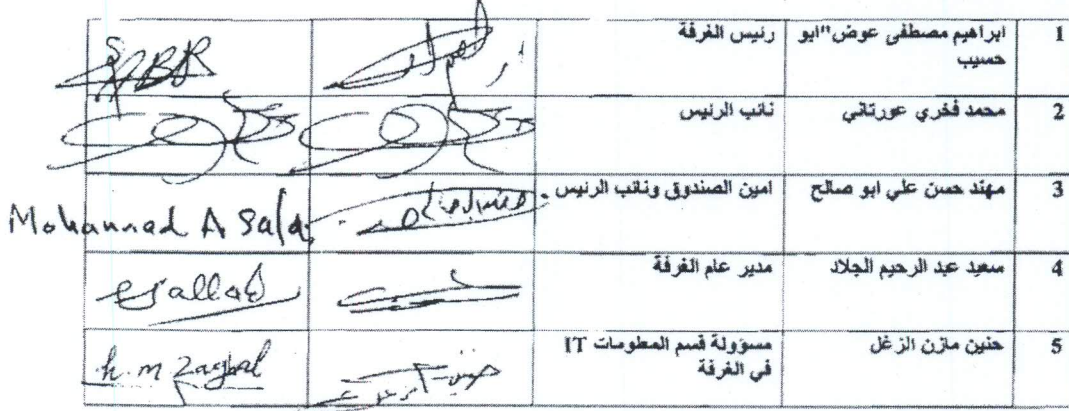 1 ابراهيم مصطفى عوض"ابو رئيس الغرفة
حسيب
2 محمد فخري عورتاني نائب الرئيس
3 مهند حسن علي ابو صالح امين الصندوق ونائب الرئيس
Mohannad A Sala
4 سعيد عبد الرحيم الجلاد مدير عام الغرفة
5 حنين مازن الزغل مسؤولة قسم المعلومات IT
في الغرفة
h.m Zaghal